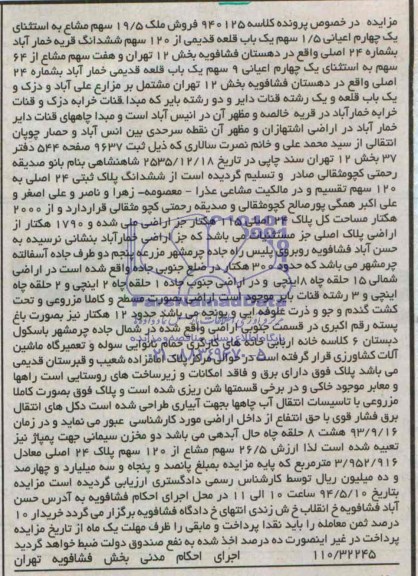 مزایده در خصوص پرونده کلاسه ۹۴۰۱۲۵ فروش ملک ۱۹/۵ سهم مشاع به استثنای
یک چهارم اعیانی ۱/۵ سهم یک باب قلعه قدیمی از ۱۲۰ سهم ششدانگ قریه خمار آباد
بشماره ۲۴ اصلی واقع در دهستان فشافویه بخش ۱۲ تهران و هفت سهم مشاع از ۶۴
سهم به استثنای یک چهارم اعیانی ۹ سهم یک باب قلعه قدیمی خمار آباد بشماره ۲۴
اصلی واقع در دهستان فشافویه بخش ۱۲ تهران مشتمل بر مزارع علی آباد و دزک و
یک باب قلعه و یک رشته قنات دایر و دو رشته بایر که مبدا قنات خرابه دزک و قنات
خرابه خمارآباد در قریه خالصه و مظهر آن در انیس آباد است و مبدا چاههای قنات دایر
خمار آباد در اراضی اشتهازان و مظهر آن نقطه سرحدی بین انس آباد و حصار چوپان
انتقالی از سید محمد علی و خانم نصرت سالاری که ذیل ثبت ۹۶۳۷ صفحه ۵۴۴ دفتر
۳۷ بخش ۱۲ تهران سند چاپی در تاریخ ۲۵۳۵/۱۲/۱۸ شاهنشاهی بنام بانو صدیقه
رحمتی کچومثقالی صادر و تسلیم گردیده است از ششدانگ پلاک ثبتی ۲۴ اصلی به
۱۲۰ سهم تقسیم و در مالکیت مشاعی عذرا - معصومه- زهرا و ناصر و علی اصغر و
علی اکبر همگی پورصالح کچومثقالی و صدیقه رحمتی کچو مثقالی قراردارد و از ۲۰۰۰
هکتار مساحت کل پلاک ۲۴ اصلی هکتار جز اراضی ملی شده و ۱۷۹۰ هکتار از
اراضی پلاک اصلی جز مستثنیات می باشد که جز اراضی خمارآباد بنشانی نرسیده به
حسن آباد فشافویه روبروی پلیس راه جاده چرمشهر مزرعه پنجم دو طرف جاده آسفالته
چرمشهر می باشد که حدود ۳۰۰ هکتار در ضلع جنوبی جاده واقع شده است در اراضی
شمالی ۱۵ حلقه چاه ۸ اینچی و در اراضی جنوبی جاده ۱ حلقه چاه ۲ اینچی و ۲ حلقه چاه
اینچی و ۳ رشته قنات بایر موجود است اراضی بصورت مسطح و کاملا مزروعی و تحت
کشت گندم و جو و ذرت علوفه ایی و یونجه می باشد حدود ۱۲ هکتار نیز بصورت باغ
پسته رقم اکبری در قسمت جنوبی اراضی واقع شده در شمال جاده چرمشهر باسکول
دبستان ۶ کلاسه خانه اربابی خانه های کارگری حمام نانوایی سوله و تعمیرگاه ماشین
آلات کشاورزی قرار گرفته است در حوالی مرکز پلاک امامزاده شعیب و قبرستان قدیمی
می باشد پلاک فوق دارای برق و فاقد امکانات و زیرساخت های روستایی است راهها
و معابر موجود خاکی و در برخی قسمتها شن ریزی شده است و پلاک فوق بصورت کاملا
مزروعی با تاسیسات انتقال آب چاهها بجهت آبیاری طراحی شده است دکل های انتقال
برق فشار قوی با حق انتفاع از داخل اراضی مورد کارشناسی عبور می نماید و در زمان
۹۳/۹/۱۶ هشت ۸ حلقه چاه حال آبدهی می باشد دو مخزن سیمانی جهت پمپاژ نیز
تعبیه شده است لذا ارزش ۲۶/۵ سهم مشاع از ۱۲۰ سهم پلاک ۲۴ اصلی معادل
۳/۹۵۲/۹۱۶ مترمربع که پایه مزایده بمبلغ پانصد و پنجاه و سه میلیارد و چهارصد
و ده میلیون ریال توسط کارشناس رسمی دادگستری ارزیابی گردیده است مزایده
بتاریخ ۹۴/۵/۱۰ ساعت ۱۰ الی ۱۱ در محل اجرای احکام فشافویه به آدرس حسن
آباد فشافویه خ انقلاب خ ش زندی انتهای خ دادگاه فشافویه برگزار می گردد خریدار ۱۰
درصد ثمن معامله را باید نقدا پرداخت و مابقی را ظرف مهلت یک ماه از تاریخ مزایده
پرداخت در غیر اینصورت ده درصد اخذ شده به نفع صندوق دولت ضبط خواهد گردید
۱۱۰/۳۲۲۴۵ اجرای احکام مدنی بخش فشافویه تهران